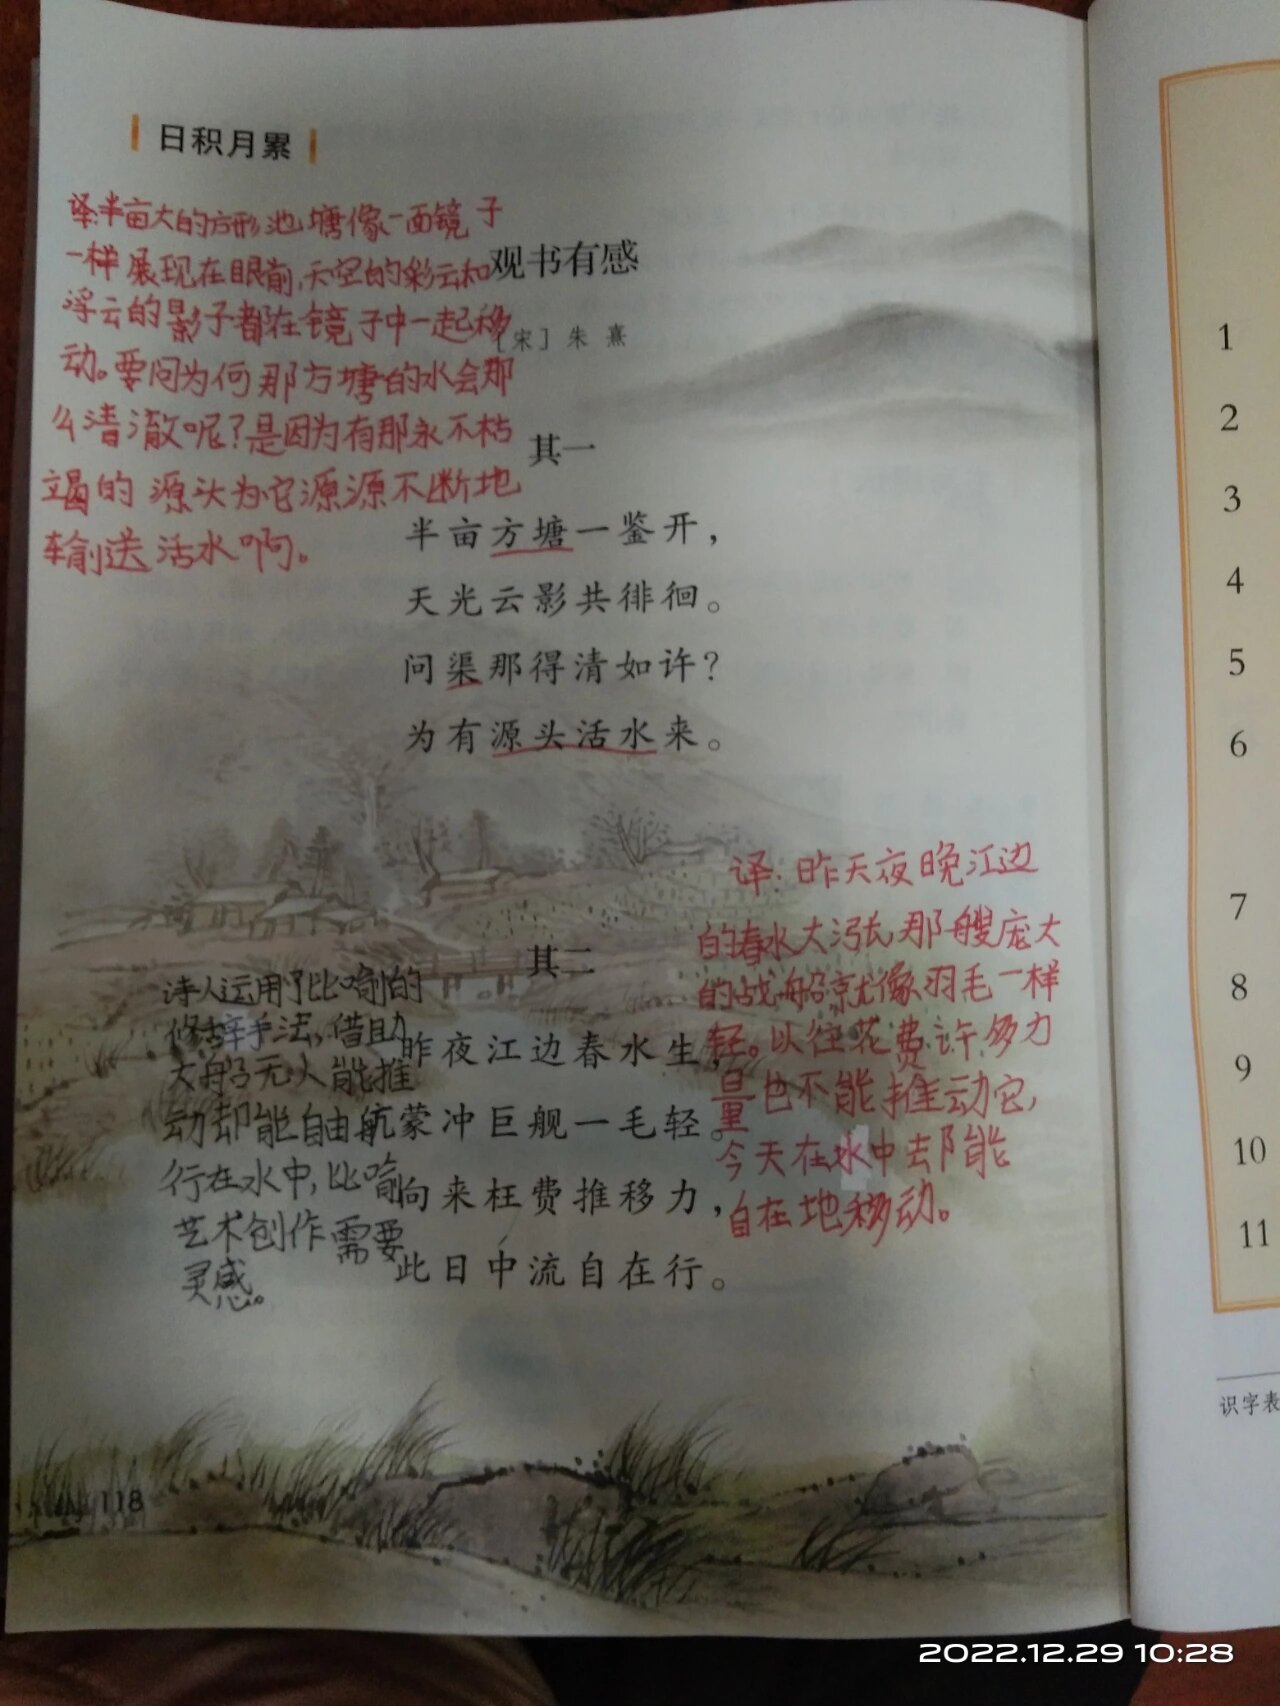 日积月累
译:半亩大的方形池塘像一面镜子
一样展现在眼前,天空的彩云和
浮云的影子都在镜子中一起移
动。要问为何那方塘的水会那
么清澈呢?是因为有那永不枯
竭的源头为它源源不断地
输送活水啊。
观书有感
[宋] 朱熹
其一
半亩方塘一鉴开，
天光云影共徘徊。
问渠那得清如许？
为有源头活水来。
其二
昨夜江边春水生，
蒙冲巨舰一毛轻。
向来枉费推移力，
此日中流自在行。
译:昨天夜晚江边
的春水大涨,那艘庞大
的战船就像羽毛一样
轻。以往花费许多力
量也不能推动它,
今天在水中去能
自在地移动。
诗人运用了比喻的
修辞手法,借助
大船无人能推
动却能自由航
行在水中,比喻
艺术创作需要
灵感。
118
1
2
3
4
5
6
7
8
9
10
11
识字表
2022.12.29 10:28